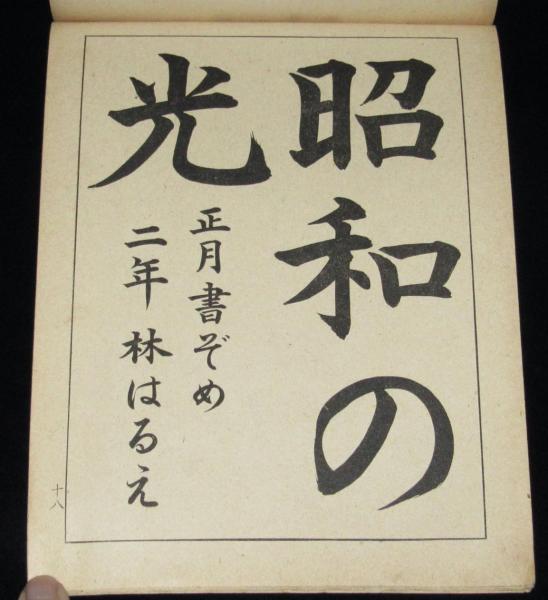 昭和の
光
正月書ぞめ
二年 林はるえ
十八